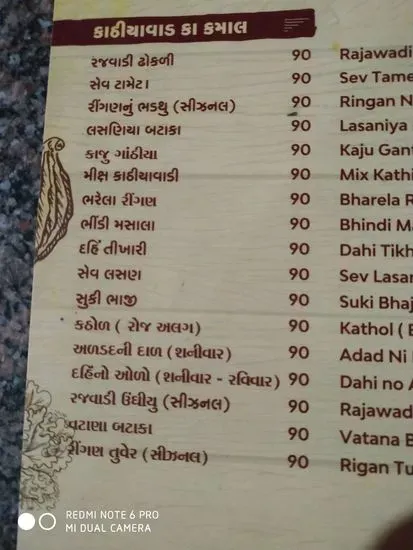 કાઠીયાવાડ કા કમાલ
રજવાડી ઢોકળી 90 Rajawadi
સેવ ટામેટા 90 Sev Tame
રીંગણનું ભડથુ (સીઝનલ) 90 Ringan N
લસણિયા બટાકા 90 Lasaniya
કાજુ ગાંઠીયા 90 Kaju Gant
મીક્ષ કાઠીયાવાડી 90 Mix Kathi
ભરેલા રીંગણ 90 Bharela R
ભીંડી મસાલા 90 Bhindi Ma
દહિં તીખારી 90 Dahi Tikh
સેવ લસણ 90 Sev Lasar
સુકી ભાજી 90 Suki Bhaj
કઠોળ ( રોજ અલગ) 90 Kathol ( E
અળડદની દાળ (શનીવાર) 90 Adad Ni
દહિંનો ઓળો (શનીવાર - રવિવાર) 90 Dahi no A
રજવાડી ઉંધીયુ (સીઝનલ) 90 Rajawad
વટાણા બટાકા 90 Vatana B
રીંગણ તુવેર (સીઝનલ) 90 Rigan Tu
REDMI NOTE 6 PRO
MI DUAL CAMERA